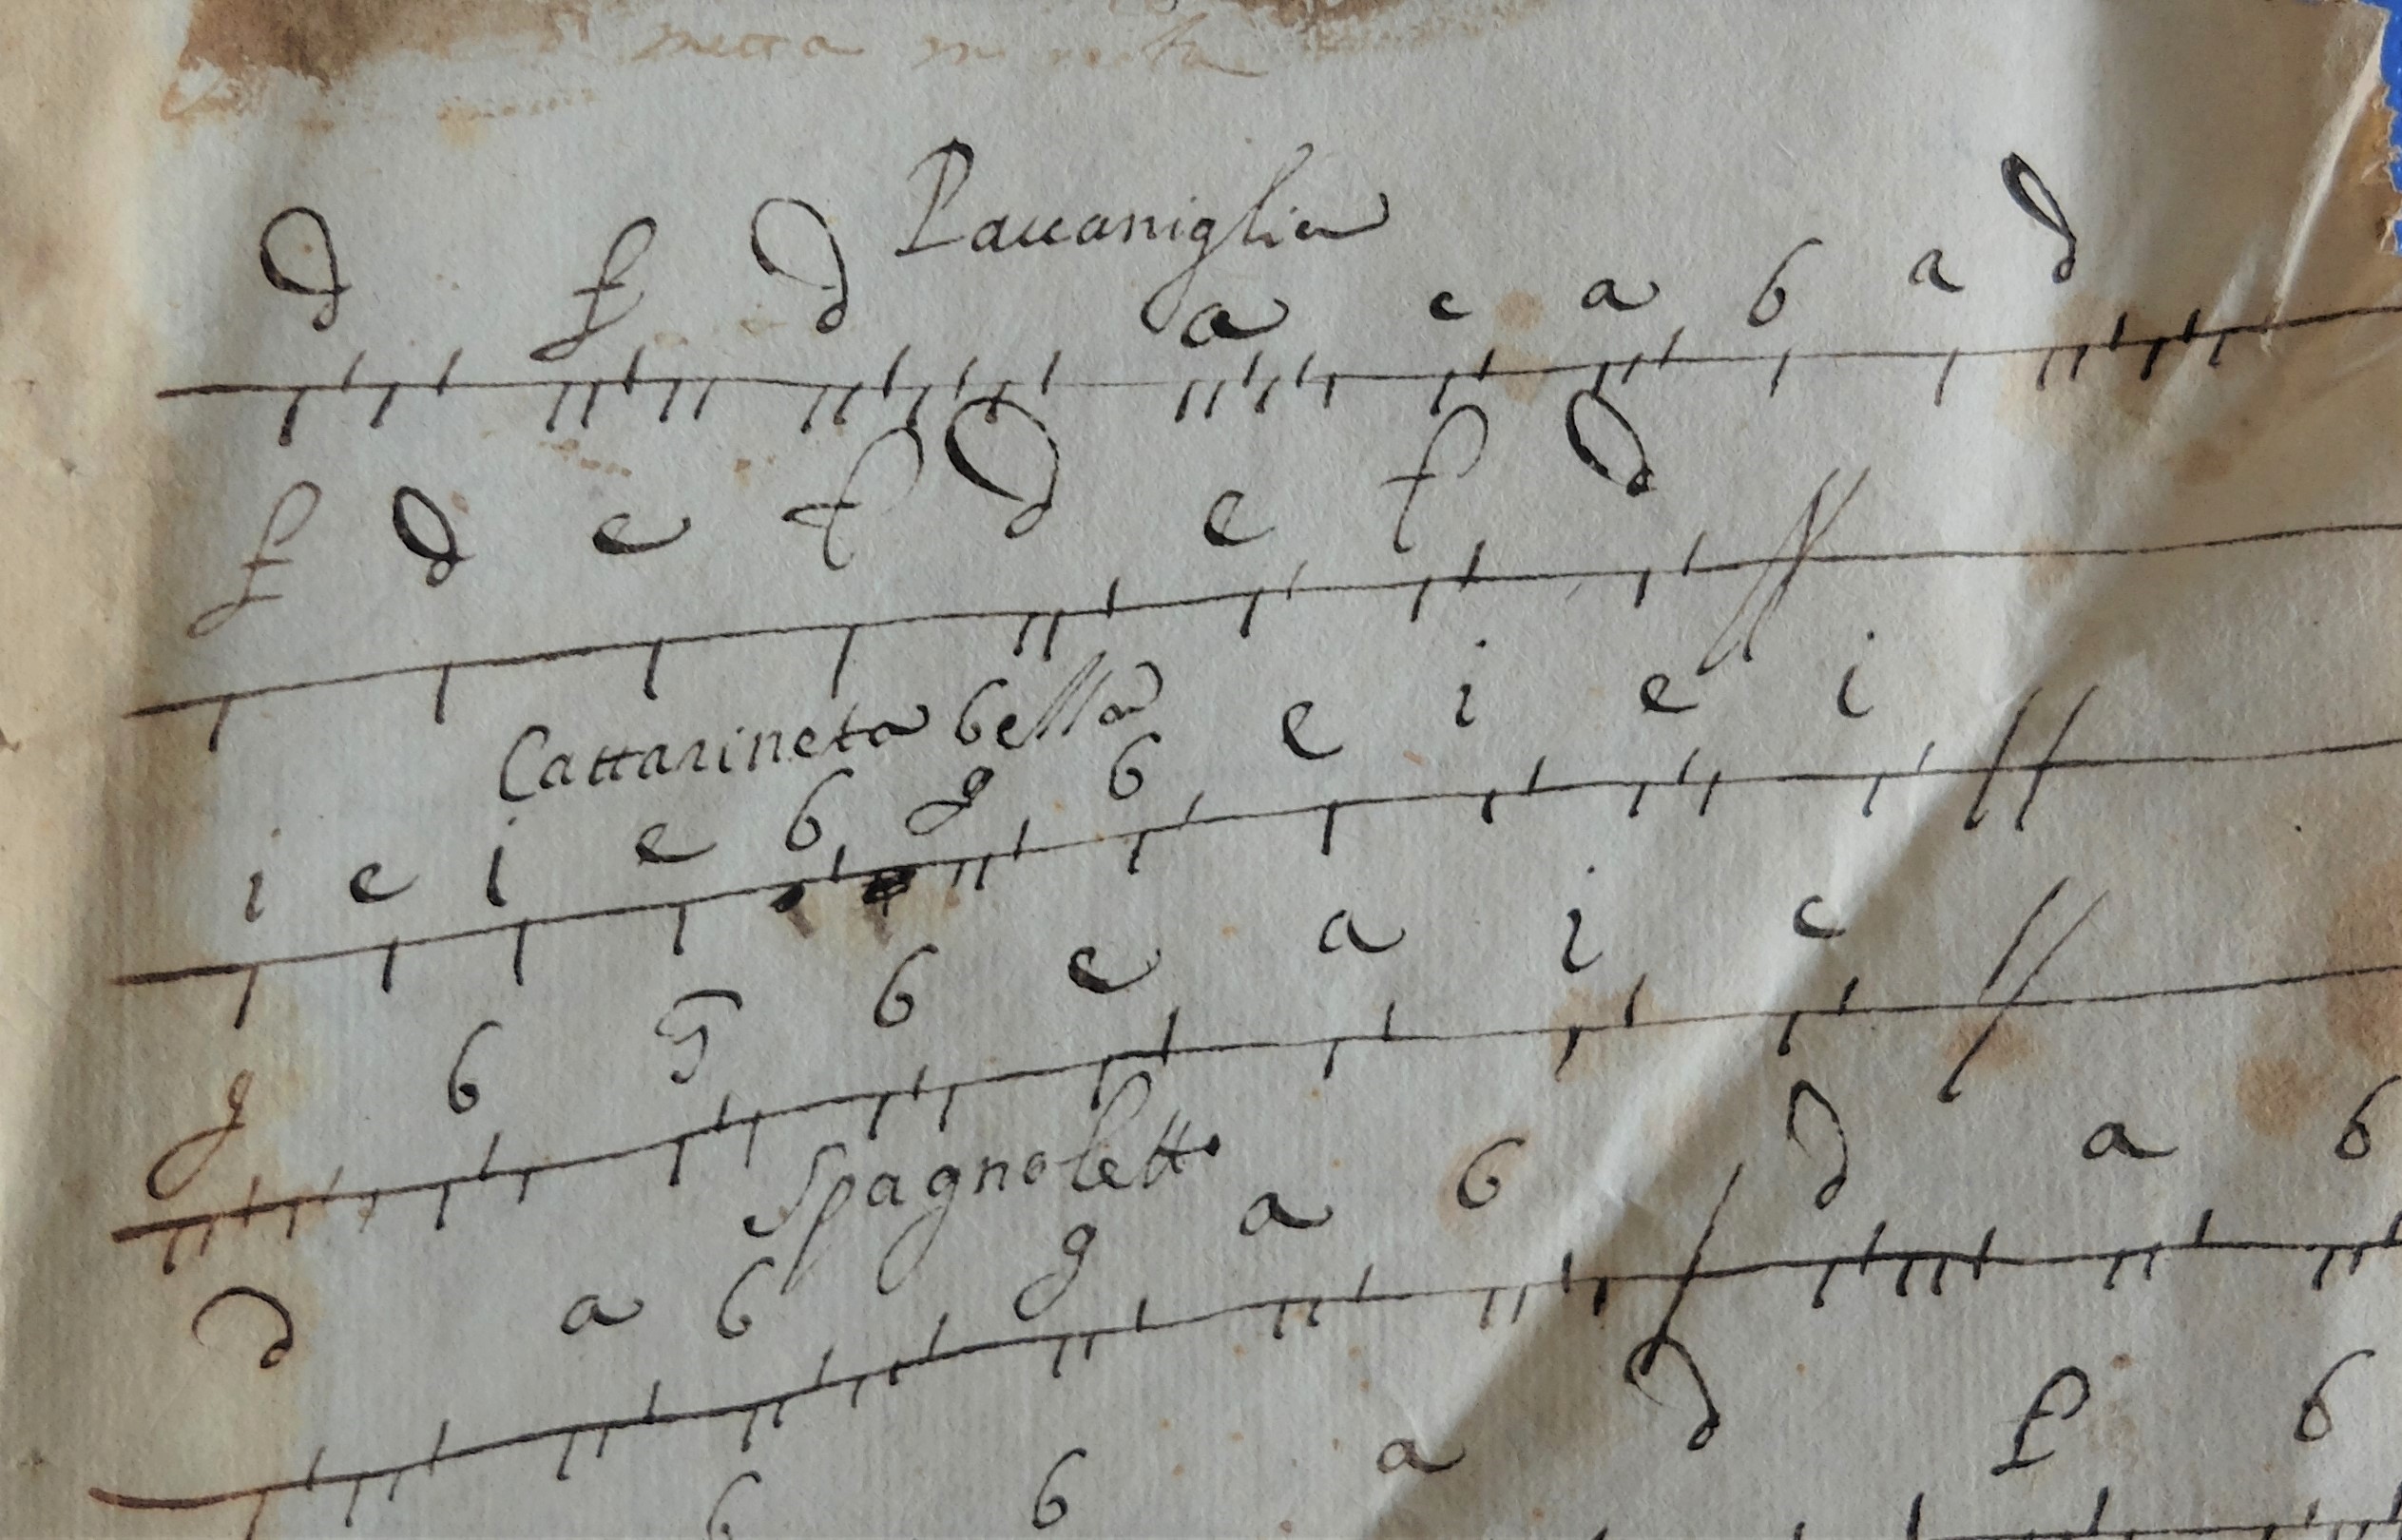 metta in
Paccaniglia
d f d a c a b a d
f d e f d e f d
Cattarineta bella
i e i e b g b e i e i
g b g b e a i c
Spagnoletto
d a b g a b d a b
b b a d f b